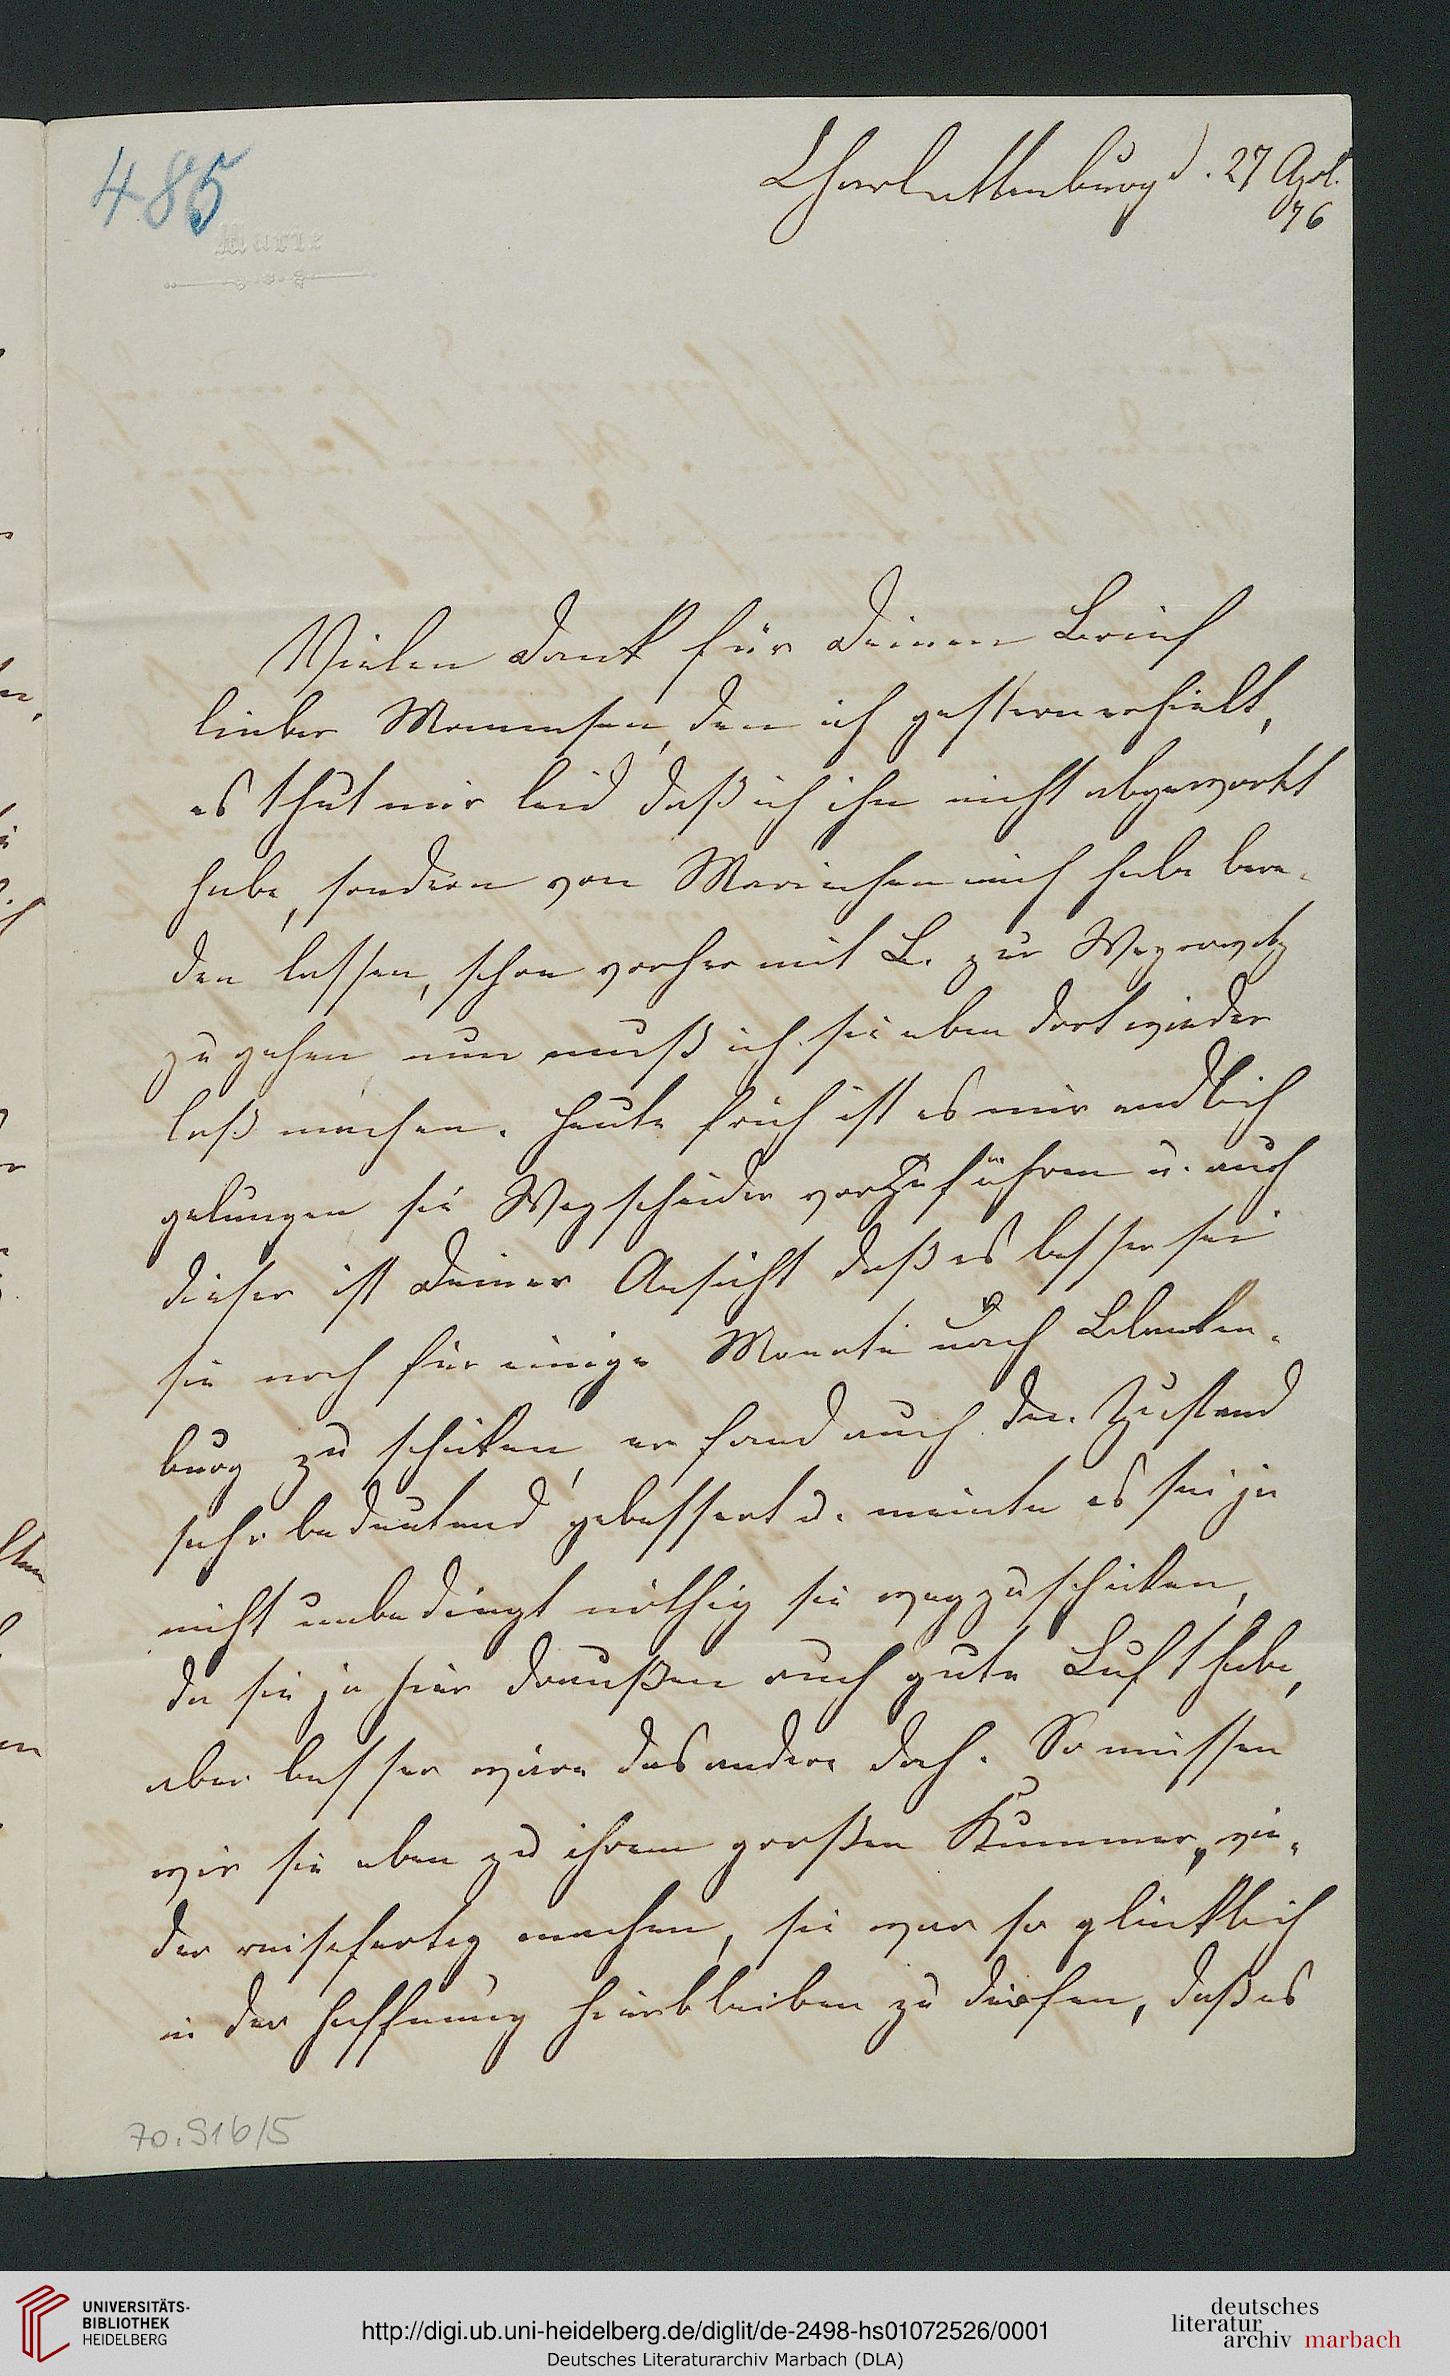 485
Marie
Charlottenburg d. 27 Apl.
76
Vielen Dank für Deinen Brief
lieber Mommsen, den ich gestern erhielt,
es thut mir leid daß ich ihn nicht abgewartet
habe, sondern von Mariechen mich habe bere-
den lassen, schon vorher mit L. zur
zu gehen, nun muß ich sie eben dort wieder
los machen. Heute früh ist es mir endlich
gelungen sie Wegscheider vorzuführen u. auch
dieser ist Deiner Ansicht daß es besser sei
sie noch für einige Monate nach Blanken-
burg zu schicken, er fand auch den Zustand
sehr bedeutend gebessert u. meinte es sei ja
nicht unbedingt nöthig sie wegzuschicken,
da sie ja hier draußen auch gute Luft habe,
aber besser wäre das andere doch. So müssen
wir sie eben zu ihrem großen Kummer, wie-
der reisefertig machen, sie war so glücklich
in der Hoffnung hierbleiben zu dürfen, daß es
70.916/5
UNIVERSITÄTS-
BIBLIOTHEK
HEIDELBERG
http://digi.ub.uni-heidelberg.de/diglit/de-2498-hs01072526/0001
Deutsches Literaturarchiv Marbach (DLA)
deutsches
literatur
archiv marbach